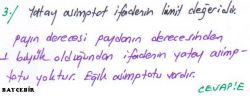 3-) Yatay asimptot ifadenin limit değeridir.
payın derecesi paydanın derecesinden
1 büyük olduğundan ifadenin yatay asimp-
totu yoktur. Eğik asimptotu vardır.
CEVAP: E
BAYCEBİR